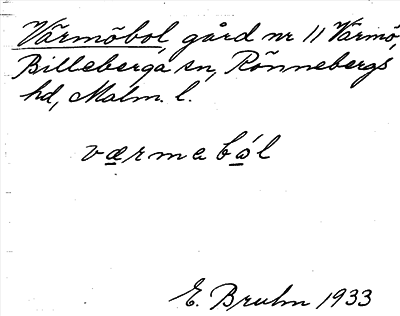 Värmöbol gård nr 11 Värmö,
Billeberga sn, Rönnebergs
hd, Malm. l.
værmabål
E. Bruhn 1933